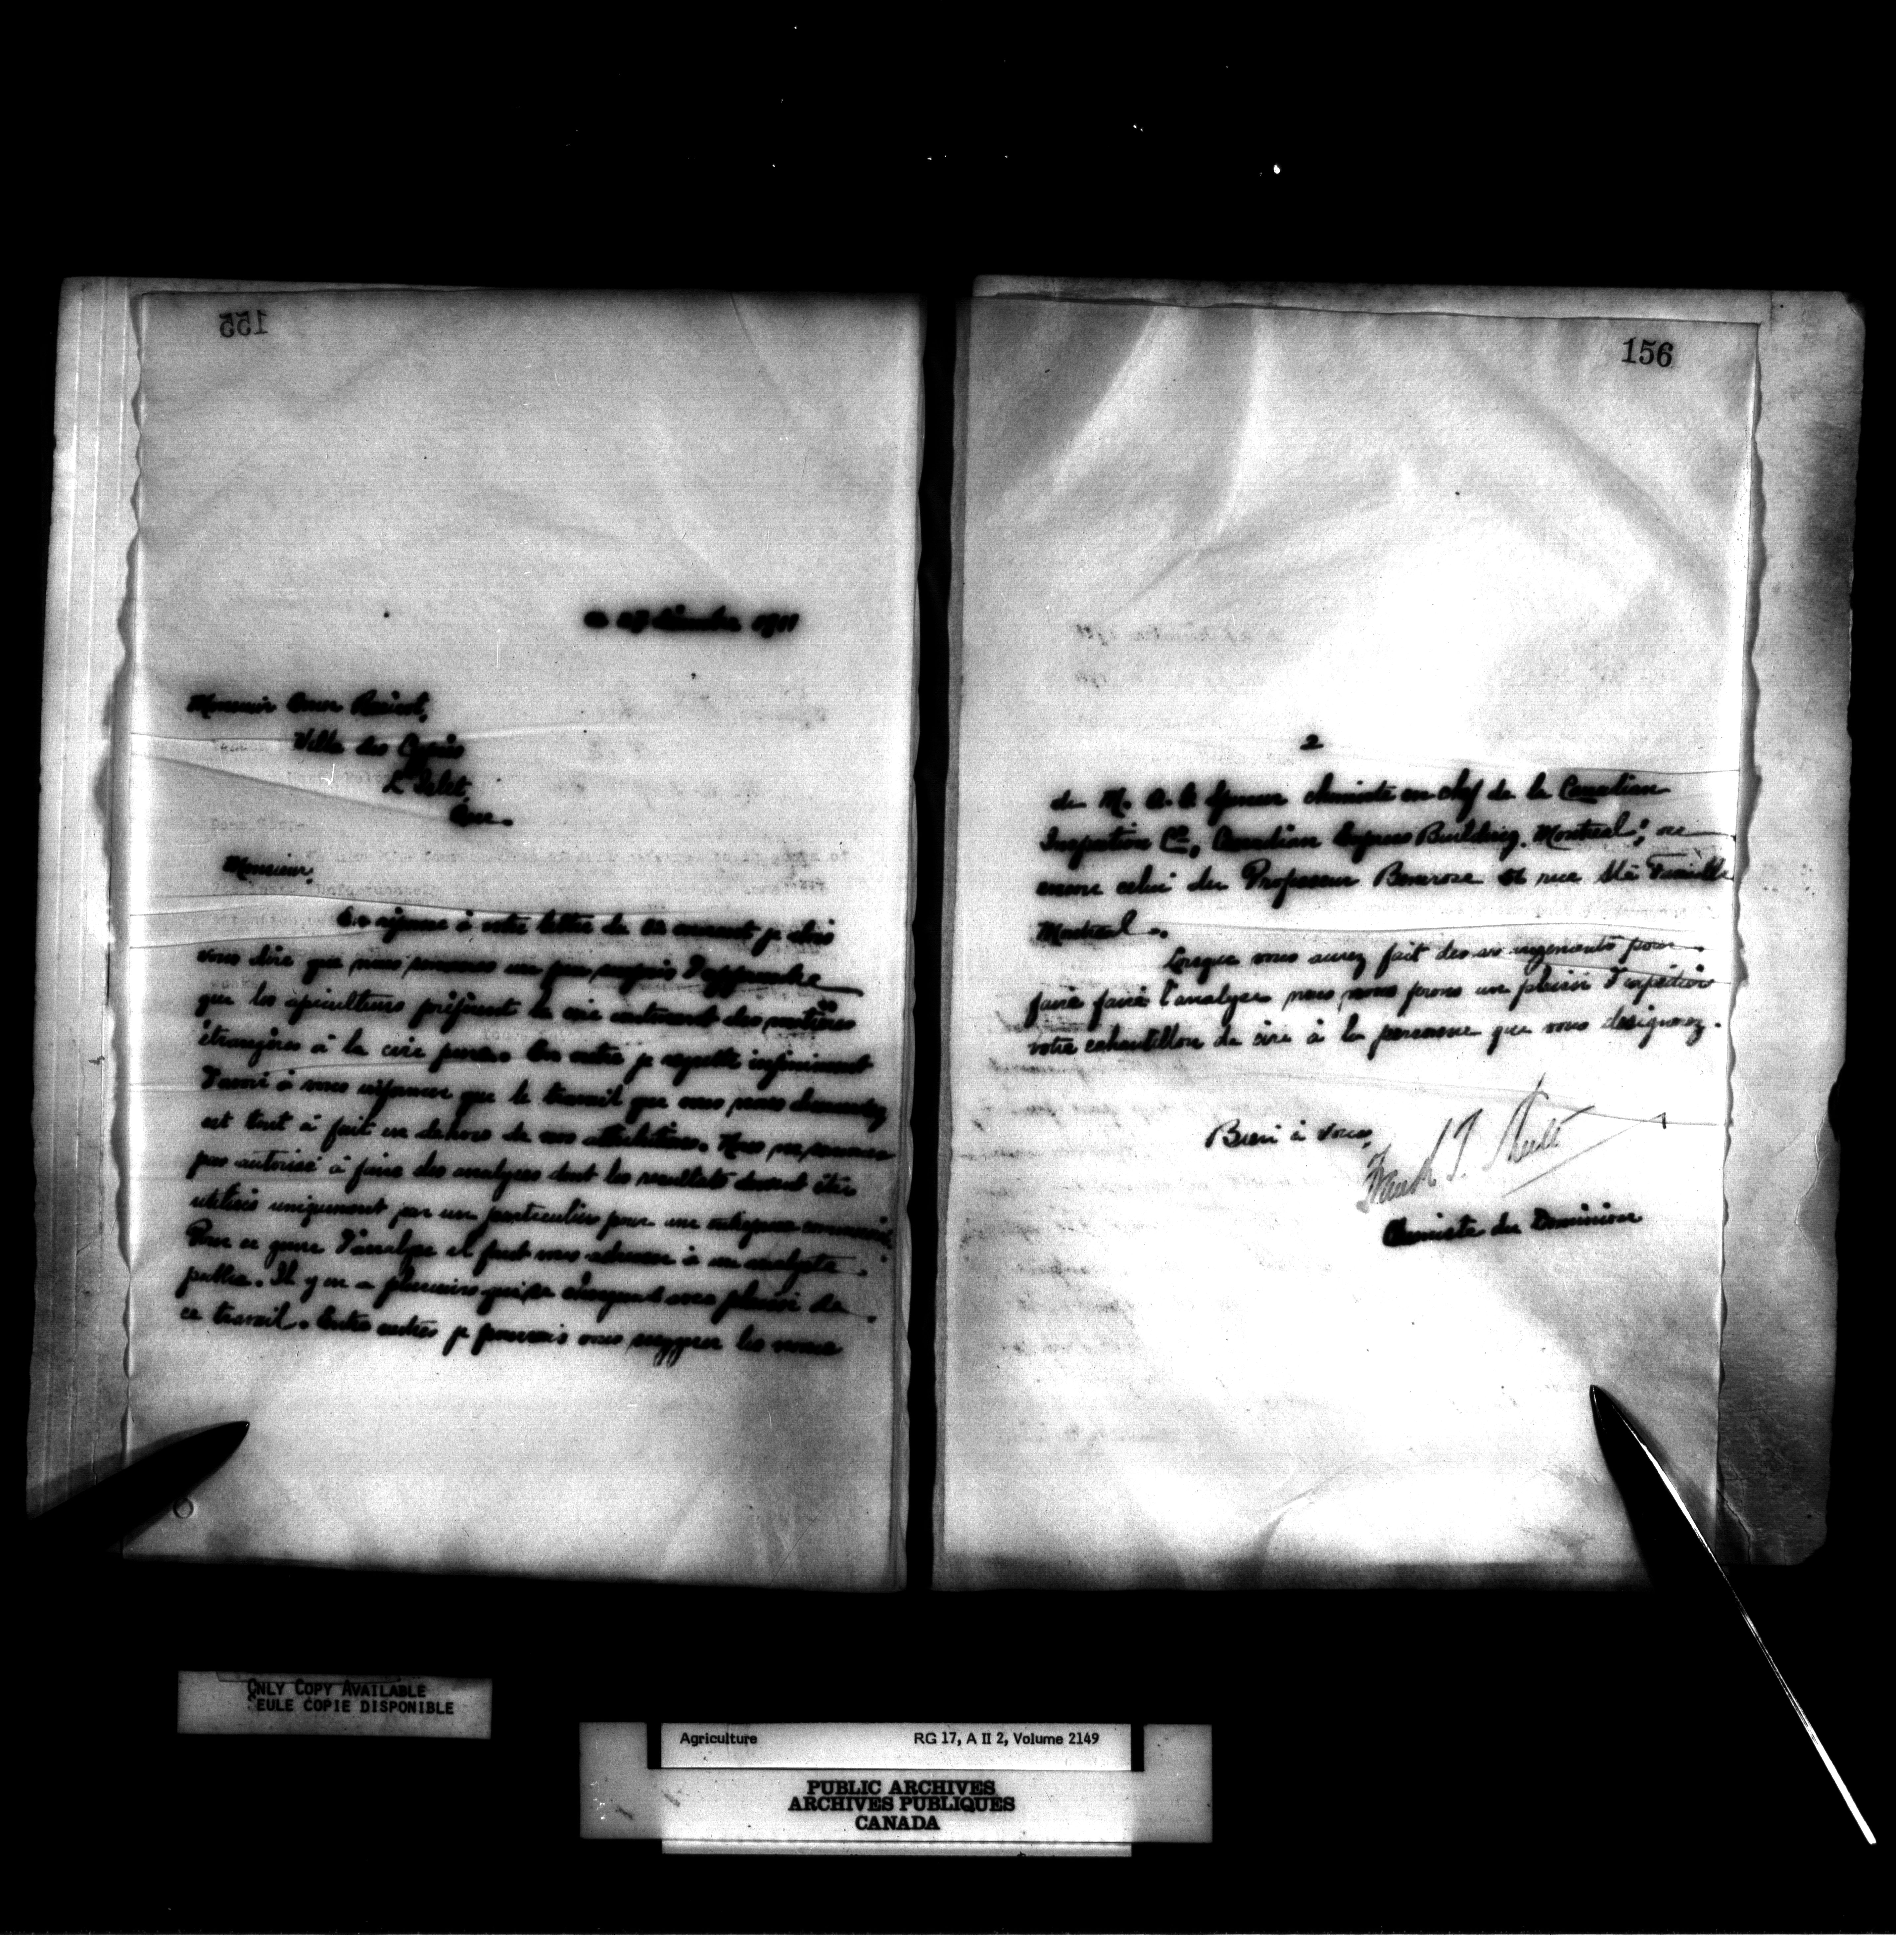 155
décembre 1911
Monsieur
Villa des Cyprès
L'Islet
Que.
Monsieur,
En réponse à votre lettre du courant je dois
vous dire que nous sommes un peu surpris d'apprendre
que les apiculteurs préfèrent la cire contenant des matières
étrangères à la cire pure. En outre je regrette infiniment
d'avoir à vous informer que le travail que vous nous demandez
est tout à fait en dehors de nos attributions. Nous ne sommes
pas autorisé à faire des analyses dont les resultats doivent être
utilisés uniquement par un particulier pour une entreprise
Pour ce genre d'analyse il faut vous adresser à un analyste
public. Il y en a plusieurs qui se chargent avec plaisir de
ce travail. Entre autres je pourrais vous suggerer les noms
156
2
de M. chimiste en chef de la Canadian
Inspection Co, Canadian Express Building, Montreal; ou
encore celui du Professeur Bemrose rue Ste Famille
Montreal.
Lorsque vous aurez fait des arrangements pour
faire faire l'analyse nous nous ferons un plaisir d'expédier
votre echantillon de cire à la personne que vous designerez.
Bien à vous,
Frank T. Shutt
Chimiste du Dominion
ONLY COPY AVAILABLE
SEULE COPIE DISPONIBLE
Agriculture RG 17, A II 2, Volume 2149
PUBLIC ARCHIVES
ARCHIVES PUBLIQUES
CANADA